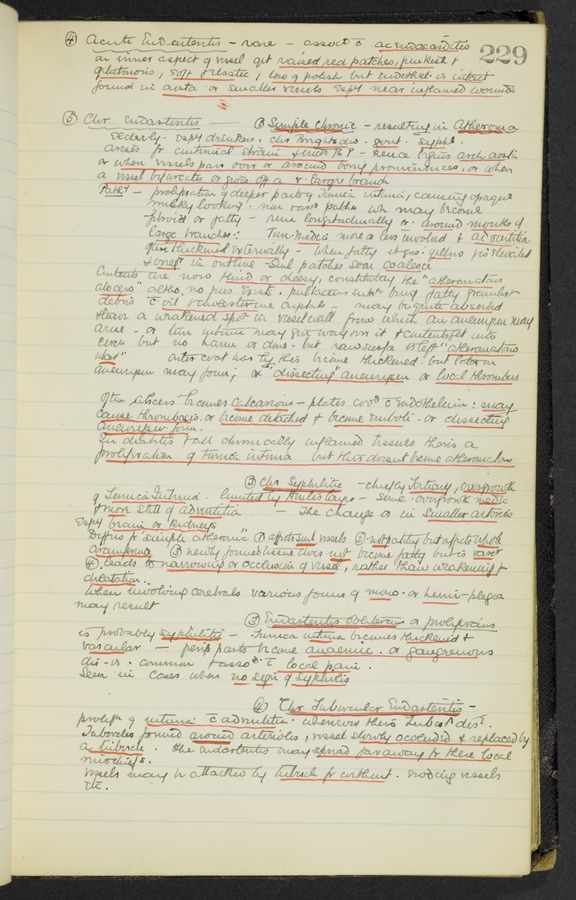 ④ Acute Endarteritis - rare - assocd c̄ acute
229
on inner aspect of vessel get raised red patches, pinkish &
gelatinous, soft & elastic, loss of polish but endothel. is intact
found in aorta or smaller vessels espy near inflamed wounds
⑤ Chr Endarteritis ① Simple Chronic - resulting in Atheroma
Elderly. espy drinkers, chr Brights dis. gout. syph.
arises fr continual strain - hence begins arch aorta
or when vessels pass over or around bony prominences, or when
a vessel bifurcates or gives off a large branch
Path - proliferation of deeper parts of tunica intima, causing opaque
milky looking patches wh may become
fibroid or fatty - run longitudinally or around mouths of
large branches: Tun. media more or less involved & adventitia
often thickened externally - when fatty it gives yellow elevated
& in outline. Sml patches soon coalesce
Contents are now fluid or cheesy, constituting the "atheromatous
abscess" altho. no pus exists. substce being fatty granular
debris c̄ oil & cholesterine crystals - may be quite absorbed
& leave a weakened spot in vessel wall from which an aneurysm may
arise - or thin intima may give way over it & contents get into
circn but no harm is done - but raw surface is left "atheromatous
ulcer" outer coat has by this become thickened - but later on
aneurysm may form; or "dissecting" aneurysm or local thrombus
Often abscess becomes calcareous - plates covd c̄ endothelium: may
cause thrombosis. or become detached & become emboli - or dissecting
aneurysm form.
In diabetes & all chronically inflamed tissues there is a
proliferation of tunica intima but this doesnt become atheromatous
② Chr Syphilitic - chiefly Tertiary, overgrowth
of Tunica Intima. limited by - some overgrowth media
& more still of adventitia - The change is in smaller arteries
Espy brain or kidneys
Differs fr "simple atheroma" ① affects sml vessels ② not patchy but affects whole
circumference ③ newly formed tissue does not become fatty but is vascr
④ leads to narrowing or occlusion of vessel, rather than weakening &
dilatation..
When involving cerebrals various forms of mono- or hemi-plegia
may result
③ Endarteritis obliterans or proliferans
is probably syphilitic - Tunica intima becomes thickened &
vascular - periph parts become anaemic. or gangrenous
dis - is common & assocd c̄ local pain.
Seen in cases when no signs of syphilis
④ Chr Tubercular Endarteritis -
prolifn of intima c̄ adventitia whenever there is Tubercr dise.
Tubercles formed around arterioles, vessel slowly occluded & replaced by
a tubercle. the endarteritis may spread far away fr these local
mischiefs.
Vessels may be attacked by tubercle fr without. eroding vessels
etc.